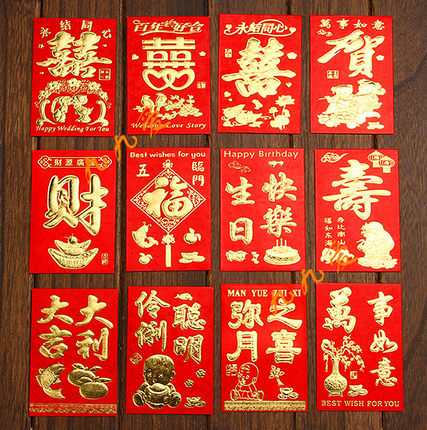 永结同心
囍
Happy Wedding For You
百年好合
囍
Wedding Love Story
永結同心
囍
萬事如意
賀
財源廣進
财
Best wishes for you
五 福 臨門
Happy Birthday
生日 快樂
壽
福如东海
寿比南山
大吉 大利
伶俐 聪明
MAN YUE ZHI XI
弥月 之喜
萬 事如意
BEST WISH FOR YOU